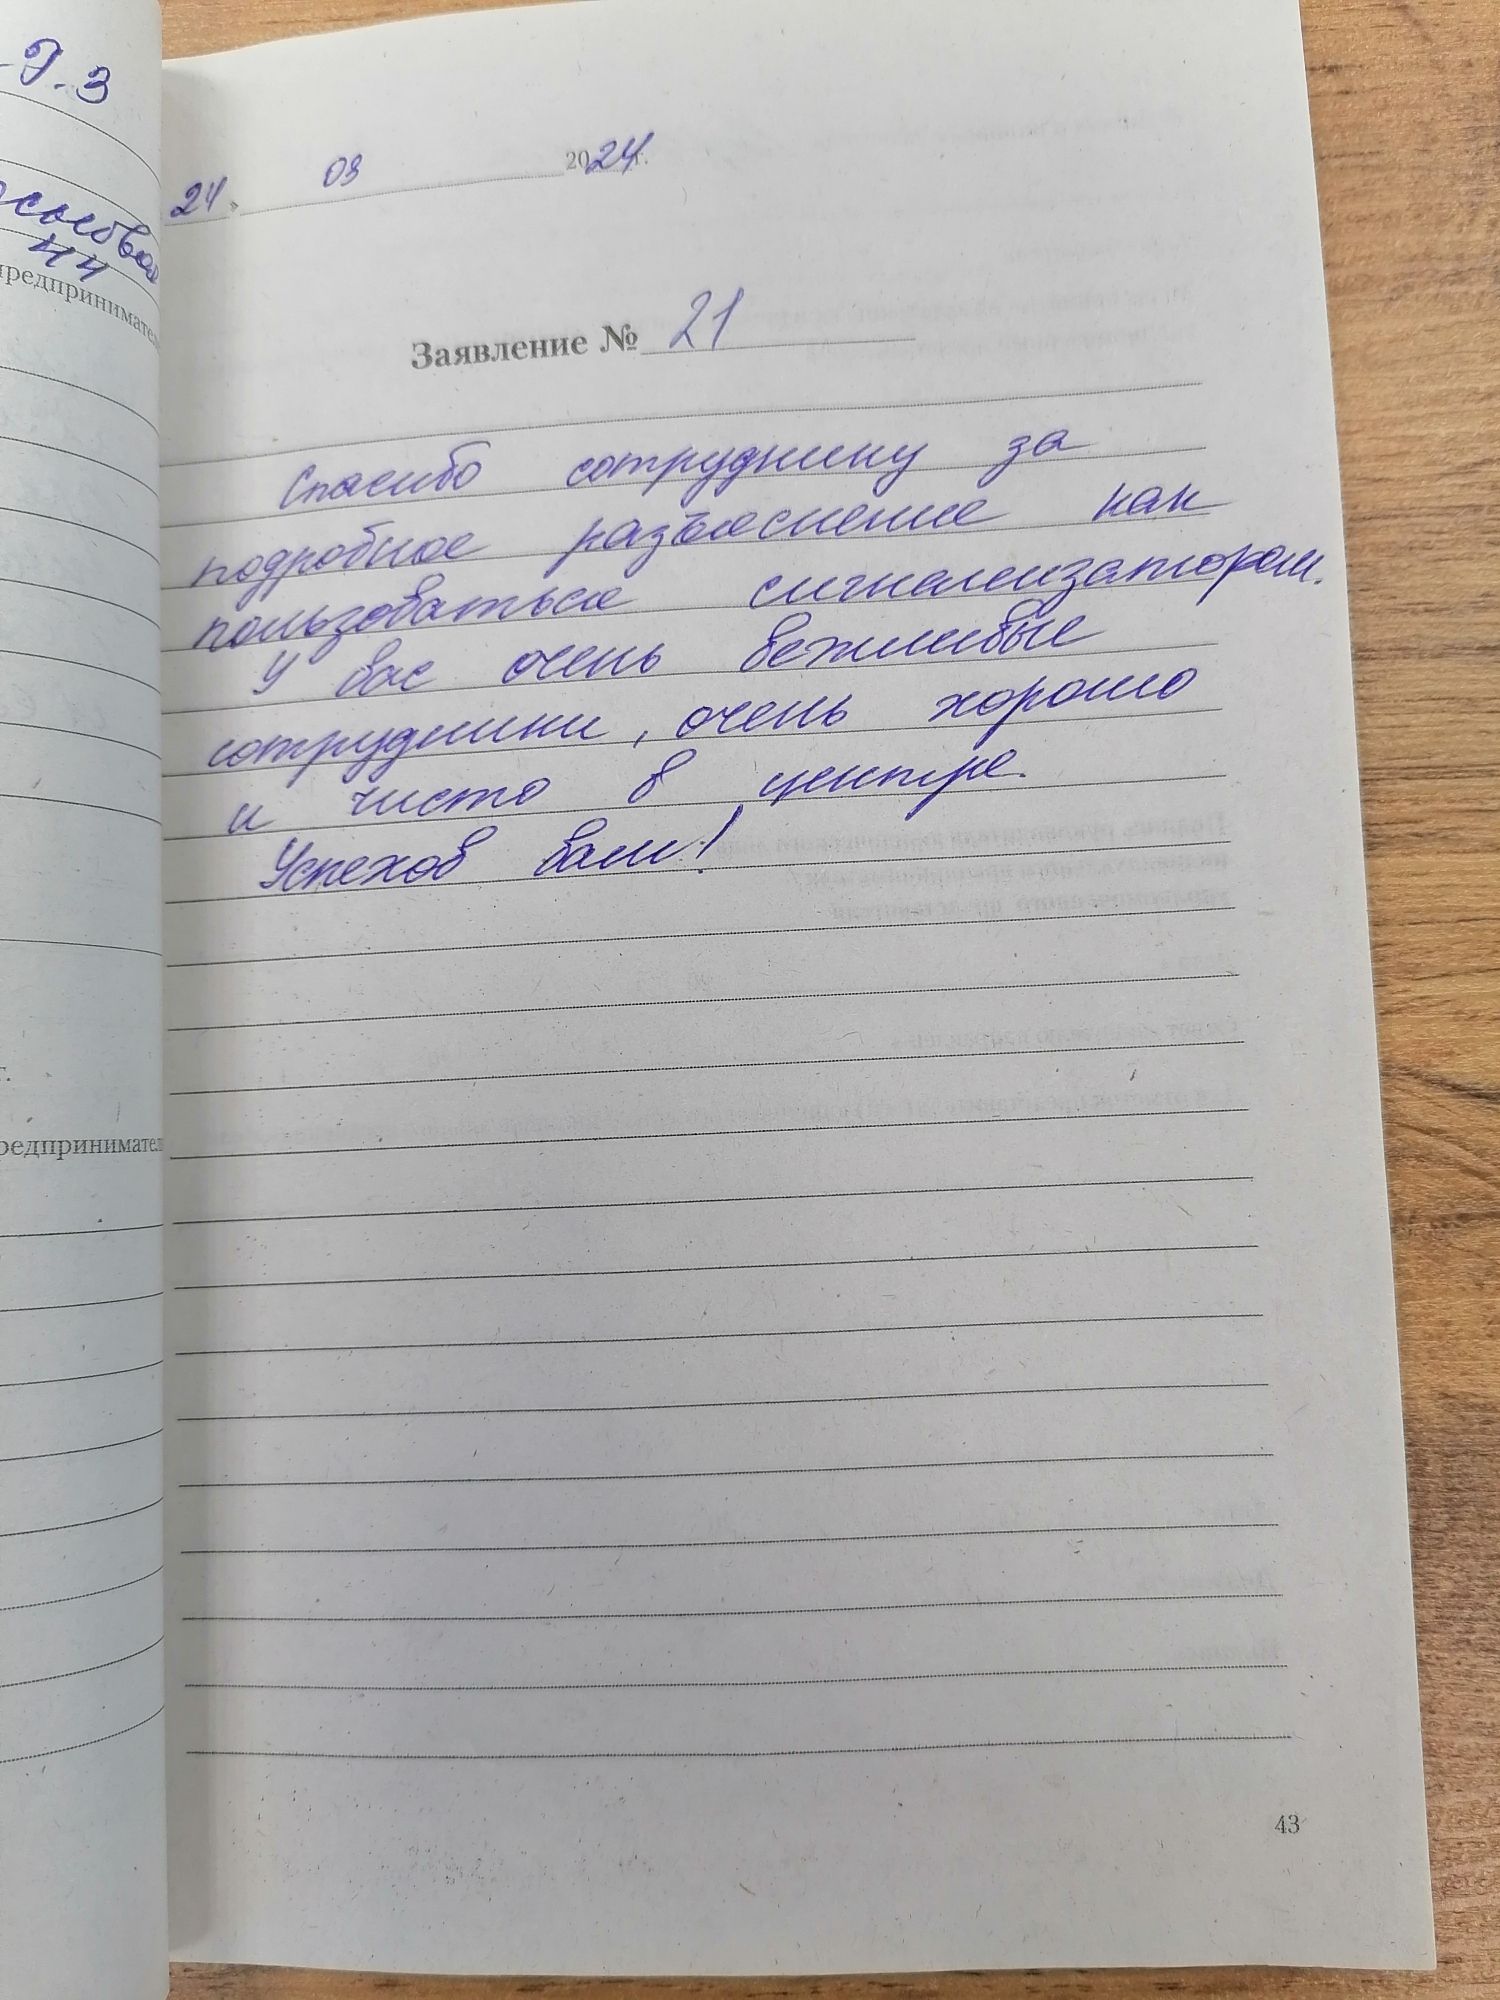 .Э.З
НН
редпринимател
г.
редпринимател
24 » 03 2024 г.
Заявление № 21
Спасибо сотруднику за
подробное разъяснение как
пользоваться сигнализатором.
У вас очень вежливые
сотрудники, очень хорошо
и чисто в центре.
Успехов вам!
43